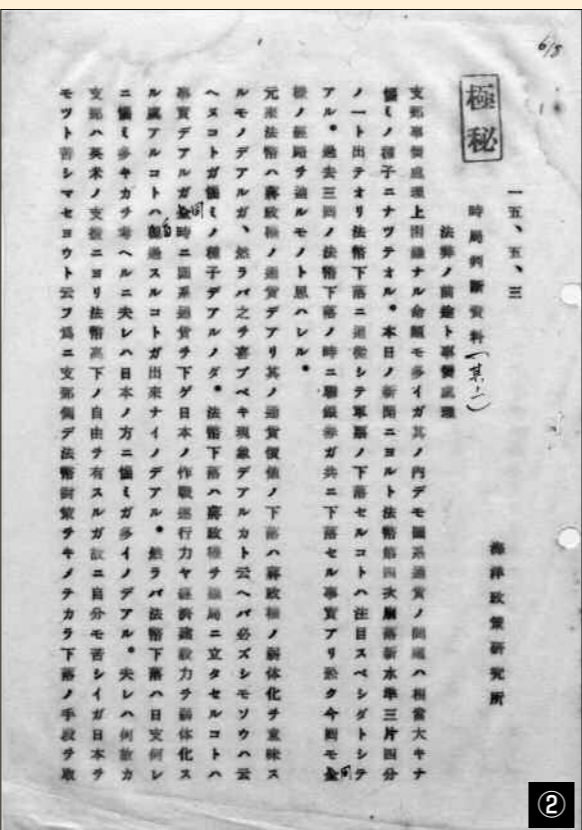 6/8
極秘
一五、五、三
時局判断資料（其ノ二）
海洋政策研究所
法幣ノ前途ト事變處理
支那事變處理上困難ナル命題モ多イガ其ノ內デモ圓系通貨ノ問題ハ相當大キナ
惱ミノ種子ニナツテオル。本日ノ新聞ニヨルト法幣第四次崩落新水準三片四分
ノ一ト出テオリ法幣下落ニ追從シテ軍票ノ下落セルコトハ注目スベシダトシテ
アル。過去三回ノ法幣下落ノ時ニ聯銀券ガ共ニ下落セル事實アリ 今回モ全同
樣ノ經路ヲ辿ルモノト思ハレル。
元來法幣ハ蔣政權ノ通貨デアリ其ノ通貨價値ノ下落ハ蔣政權ノ弱体化ヲ意味ス
ルモノデアルガ、然ラバ之ヲ喜ブベキ現象デアルカト云ヘバ必ズシモソウハ云
ヘヌコトガ惱ミノ種子デアルノダ。法幣下落ハ蔣政權ヲ 局ニ立タセルコトハ
事實デアルガ同時ニ圓系通貨ヲ下ゲ日本ノ作戰遂行力ヤ經濟建設力ヲ弱体化ス
ル虞アルコトハ看過スルコトガ出來ナイノデアル。然ラバ法幣下落ハ日支何レ
ニ惱ミ多キカヲ考ヘルニ夫レハ日本ノ方ニ惱ミガ多イノデアル。夫レハ何故カ
支那ハ英米ノ支援ニヨリ法幣高下ノ自由ヲ有スルガ故ニ自分モ苦シイガ日本ヲ
モツト苦シマセヨウト云フ爲ニ支那側デ法幣對策ヲキメテカラ下落ノ手段ヲ取
②